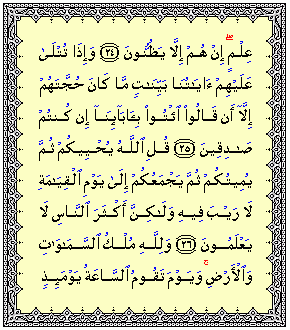 عِلْمٍ ۖ إِنْ هُمْ إِلَّا يَظُنُّونَ ﴿٢٤﴾ وَإِذَا تُتْلَىٰ
عَلَيْهِمْ ءَايَٰتُنَا بَيِّنَٰتٍ مَّا كَانَ حُجَّتَهُمْ
إِلَّآ أَن قَالُوا۟ ٱئْتُوا۟ بِـَٔابَآئِنَآ إِن كُنتُمْ
صَٰدِقِينَ ﴿٢٥﴾ قُلِ ٱللَّهُ يُحْيِيكُمْ ثُمَّ
يُمِيتُكُمْ ثُمَّ يَجْمَعُكُمْ إِلَىٰ يَوْمِ ٱلْقِيَٰمَةِ
لَا رَيْبَ فِيهِ وَلَٰكِنَّ أَكْثَرَ ٱلنَّاسِ لَا
يَعْلَمُونَ ﴿٢٦﴾ وَلِلَّهِ مُلْكُ ٱلسَّمَٰوَٰتِ
وَٱلْأَرْضِ ۚ وَيَوْمَ تَقُومُ ٱلسَّاعَةُ يَوْمَئِذٍ